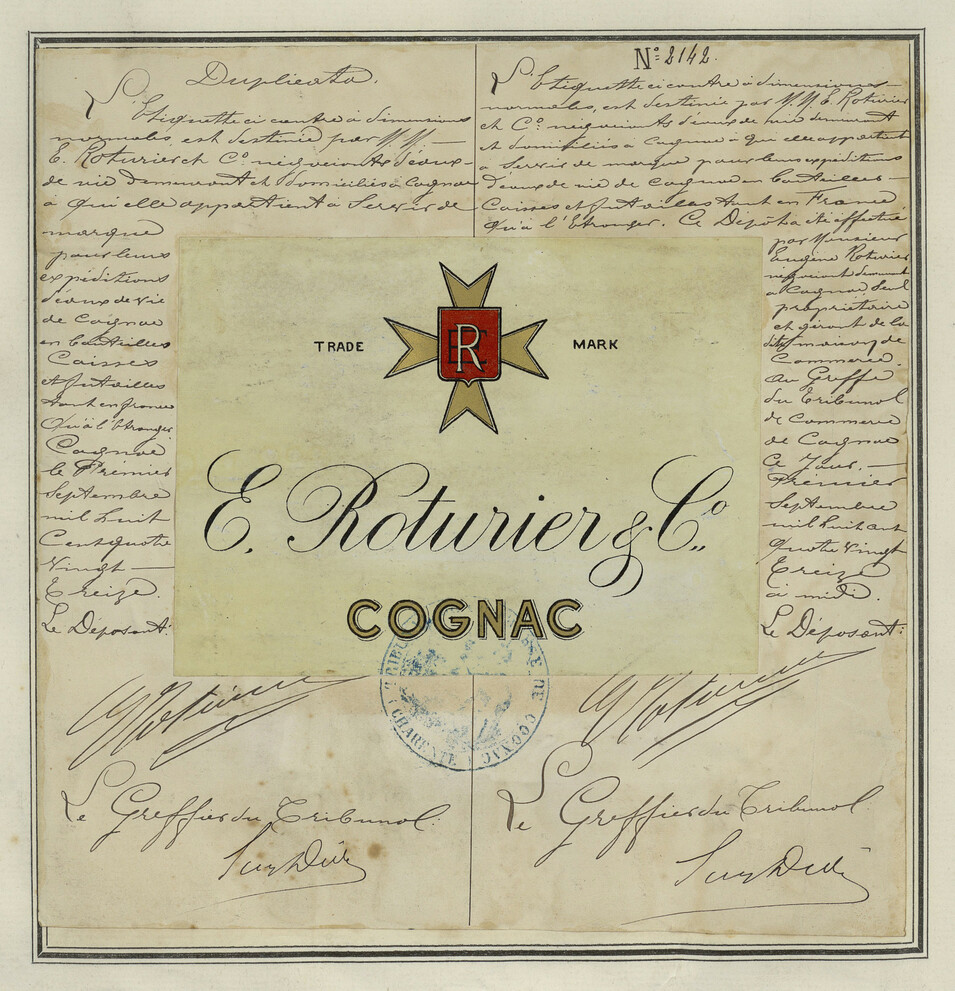 Duplicata.
L'Etiquette ci contre à dimensions
normales, est destinée par M.M.
E. Roturier et Cº négociants d'eaux-
de vie demeurant et domiciliés à Cognac
à qui elle appartient à servir de
marque
pour leurs
expéditions
d'eaux de vie
de Cognac
en bouteilles
Caisses
et futailles
tant en france
qu'à l'étranger.
Cognac
le Premier
Septembre
mil huit
Cent quatre
Vingt —
Treize.
Le Déposant:
Le Greffier du Tribunal:
Nº 2142.
L'Etiquette ci contre à dimensions
normales, est destinée par M.M. E. Roturier
et Cº négociants d'eaux de vie demeurant
et domiciliés à Cognac à qui elle appartient
à servir de marque pour leurs expéditions
d'eaux de vie de Cognac en bouteilles —
Caisses et futailles tant en France
qu'à l'Etranger. Ce Dépôt a été effectué
par Monsieur
Eugène Roturier
négociant demeurant
à Cognac seul
propriétaire
et gérant de la
dite maison de
Commerce.
au Greffe
du Tribunal
de Commerce
de Cognac
Ce Jour. —
Premier
Septembre
mil huit cent
quatre Vingt
Treize
à midi.
Le Déposant:
Le Greffier du Tribunal:
TRADE MARK
R
E. Roturier & Cº.
COGNAC
DE COGNAC
(CHARENTE)